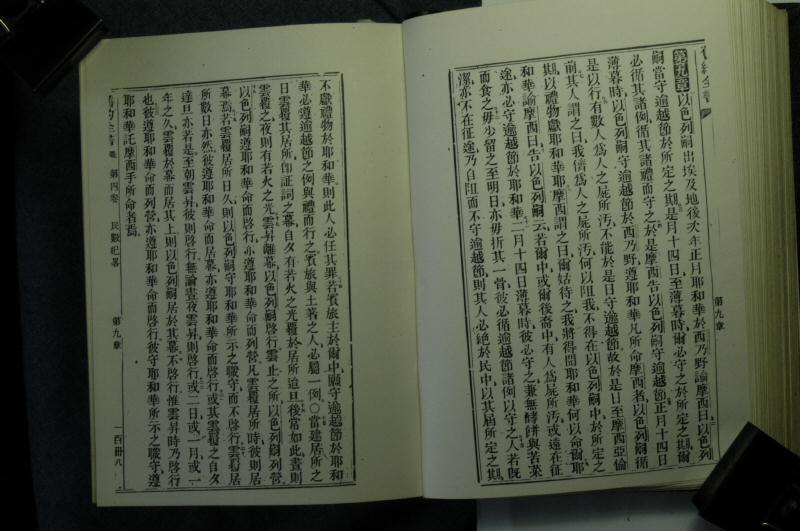 舊約全書
第九章
第九章以色列嗣出埃及地後次年正月耶和華於西乃野諭摩西曰以色列
嗣當守逾越節於所定之期是月十四日至薄暮時爾必守之於所定之期
必循其諸例循其諸禮而守之於是摩西告以色列嗣守逾越節正月十四日
薄暮時以色列嗣守逾越節於西乃野遵耶和華凡所命摩西者以色列嗣循
是以行有數人爲人之屍所汚不能於是日守逾越節故於是日至摩西亞倫
前其人謂之曰我儕爲人之屍所汚何以阻我不得在以色列嗣中於所定之
期以禮物獻耶和華耶摩西謂之曰爾姑待之我將得聞耶和華何以命爾耶
和華諭摩西曰告以色列嗣云爾中或爾後裔中有人爲屍所汚或遠在征
途亦必守逾越節於耶和華二月十四日薄暮時彼必守之兼無酵餅與若菜
而食之毋少留之至明日亦毋折其一骨彼必循逾越節諸例以守之人若旣
潔亦不在征途乃自阻而不守逾越節則其人必絕於民中以其屆所定之期
不獻禮物於耶和華則此人必任其罪若賓旅主於爾中願守逾越節於耶和
華必遵逾越節之例與禮而行之賓旅與土著之人必屬一例〇當建居所之
日雲覆其居所卽証詞之幕自夕有若火之光覆於居所迨旦後常如此晝則
雲覆之夜則有若火之光雲昇離幕以色列嗣啓行雲止之所以色列嗣列營
以色列嗣遵耶和華命而啓行亦遵耶和華命而列營凡雲覆居所時彼則居
幕焉若雲覆居所日久則以色列嗣守耶和華所示之職守而不啓行雲覆居
所數日亦然彼遵耶和華命而居幕亦遵耶和華命而啓行或其雲覆之自夕
達旦亦若是至朝雲昇彼則啓行無論晝夜雲昇則啓行或二日或一月或一
年之久雲覆於幕而居其上則以色列嗣居於其幕不啓行惟雲昇時乃啓行
也彼遵耶和華命而列營亦遵耶和華命而啓行彼守耶和華所示之職守遵
耶和華託摩西手所命者焉
舊約全書 第四卷 民數紀畧 第九章 一百卌八